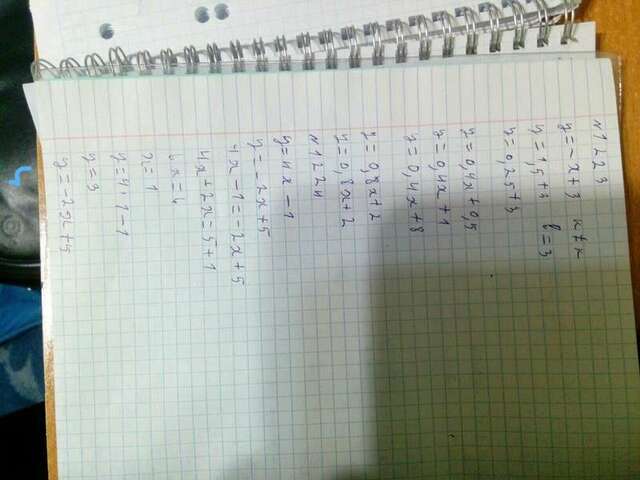 N1223
y=-x+3 k≠k
y=1,5+3 b=3
y=0,25+3
y=0,4x+0,5
y=0,4x+1
y=0,4x+8
y=0,8x+2
y=0,8x+2
N1224
y=4x-1
y=-2x+5
4x-1=-2x+5
4x+2x=5+1
6x=6
x=1
y=4·1-1
y=3
y=-2x+5